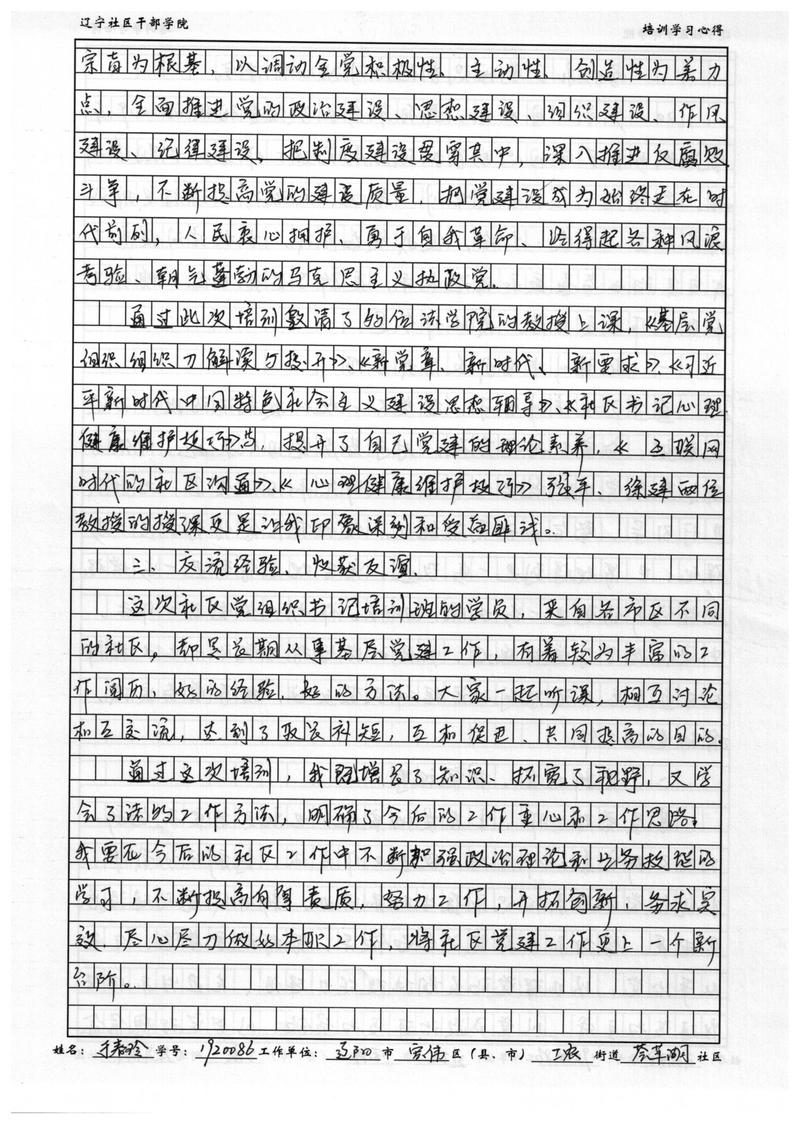 辽宁社区干部学院 培训学习心得
宗旨为根基，以调动全党积极性、主动性、创造性为着力
点，全面推进党的政治建设、思想建设、组织建设、作风
建设、纪律建设，把制度建设贯穿其中，深入推进反腐败
斗争，不断提高党的建设质量，把党建设成为始终走在时
代前列，人民衷心拥护、勇于自我革命、经得起各种风浪
考验、朝气蓬勃的马克思主义执政党。
通过此次培训邀请了的位法学院的教授上课，《基层党
组织组织力解读与提升》、《新党章、新时代、新要求》、《习近
平新时代中国特色社会主义建设思想辅导》、《社区书记心理
健康维护技巧》等，提升了自己党建的理论素养，《互联网
时代的社区沟通》、《心理健康维护技巧》张平、徐建两位
教授的授课更是让我印象深刻和受益匪浅。
三、交流经验、收获友谊.
这次社区党组织书记培训班的学员，来自各市区不同
的社区，却是长期从事基层党建工作，有着较为丰富的工
作阅历、好的经验、好的方法。大家一起听课，相互讨论
和互交流，达到了取长补短，互相促进、共同提高的目的.
通过这次培训，我既增长了知识、拓宽了视野，又学
会了法的工作方法，明确了今后的工作重心和工作思路。
我要在今后的社区工作中不断加强政治理论和业务技能的
学习，不断提高自身素质，努力工作，开拓创新，务求实
效，尽心尽力做好本职工作，将社区党建工作更上一个新
台阶。
姓名： 学号：1920086 工作单位：辽阳 市 宏伟 区（县、市） 工农 街道 社区